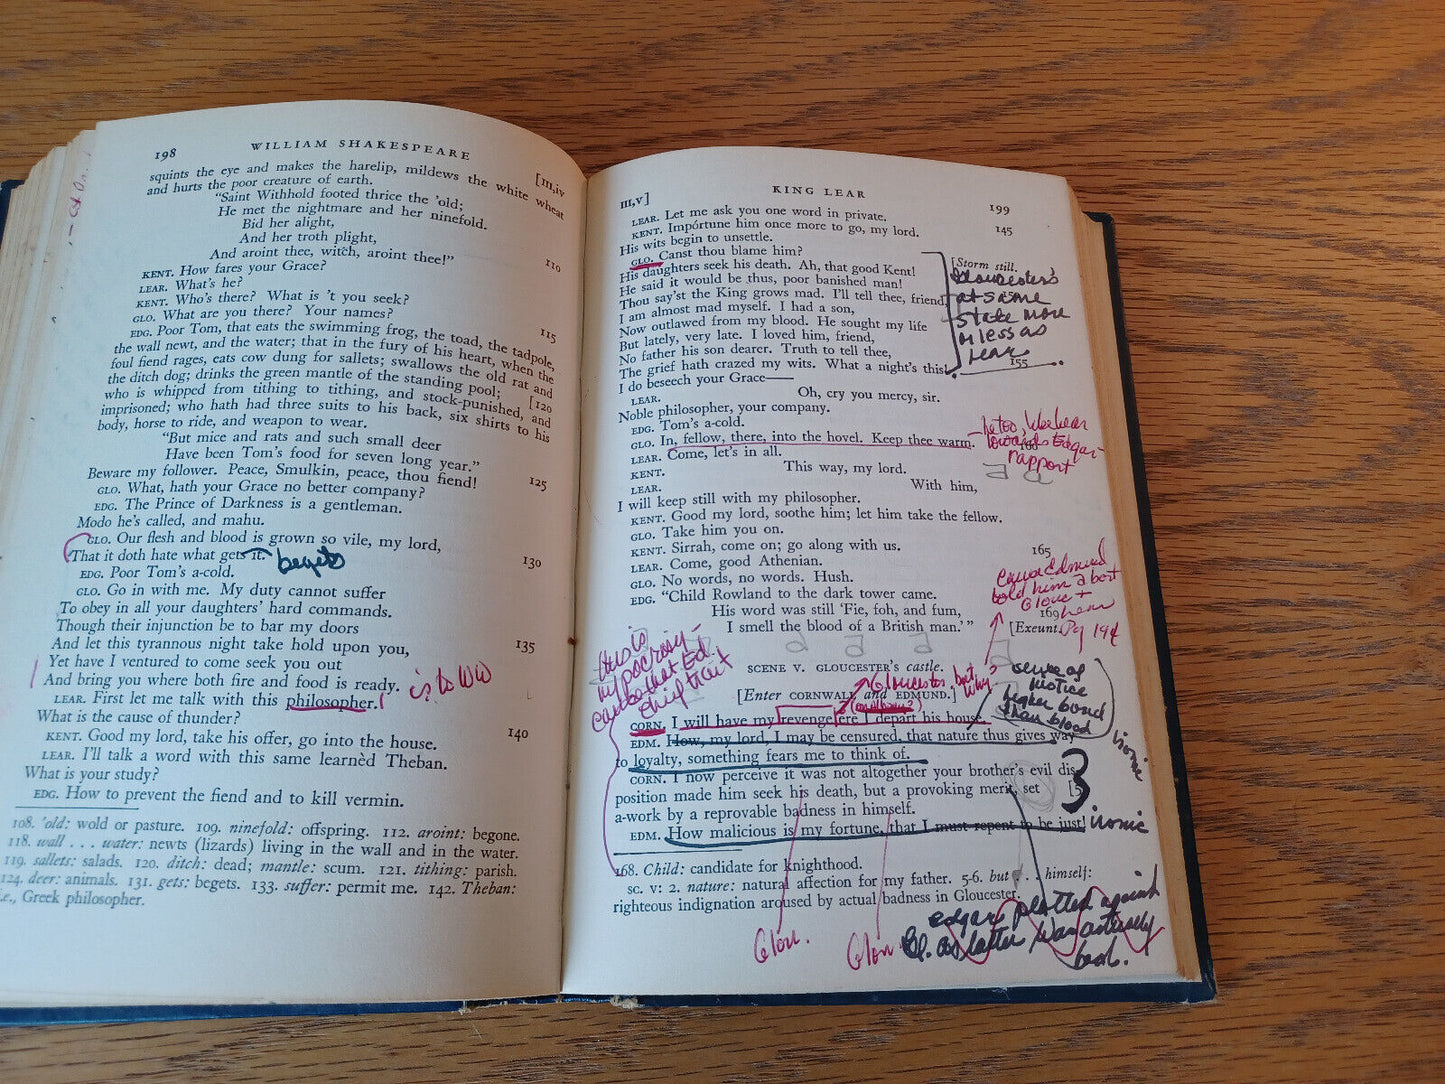 198
WILLIAM SHAKESPEARE
[III,iv
squints the eye and makes the harelip, mildews the white wheat
and hurts the poor creature of earth.
"Saint Withhold footed thrice the 'old;
He met the nightmare and her ninefold.
Bid her alight,
And her troth plight,
And aroint thee, witch, aroint thee!" 110
KENT. How fares your Grace?
LEAR. What's he?
KENT. Who's there? What is 't you seek?
GLO. What are you there? Your names?
EDG. Poor Tom, that eats the swimming frog, the toad, the tadpole, 115
the wall newt, and the water; that in the fury of his heart, when the
foul fiend rages, eats cow dung for sallets; swallows the old rat and
the ditch dog; drinks the green mantle of the standing pool;
who is whipped from tithing to tithing, and stock-punished, and [120
imprisoned; who hath had three suits to his back, six shirts to his
body, horse to ride, and weapon to wear.
"But mice and rats and such small deer
Have been Tom's food for seven long year."
Beware my follower. Peace, Smulkin, peace, thou fiend!
GLO. What, hath your Grace no better company? 125
EDG. The Prince of Darkness is a gentleman.
Modo he's called, and mahu.
GLO. Our flesh and blood is grown so vile, my lord,
That it doth hate what gets it. begets 130
EDG. Poor Tom's a-cold.
GLO. Go in with me. My duty cannot suffer
To obey in all your daughters' hard commands.
Though their injunction be to bar my doors
And let this tyrannous night take hold upon you, 135
Yet have I ventured to come seek you out
And bring you where both fire and food is ready.
LEAR. First let me talk with this philosopher.
What is the cause of thunder?
KENT. Good my lord, take his offer, go into the house. 140
LEAR. I'll talk a word with this same learnèd Theban.
What is your study?
EDG. How to prevent the fiend and to kill vermin.
108. 'old: wold or pasture. 109. ninefold: offspring. 112. aroint: begone.
118. wall . . . water: newts (lizards) living in the wall and in the water.
119. sallets: salads. 120. ditch: dead; mantle: scum. 121. tithing: parish.
124. deer: animals. 131. gets: begets. 133. suffer: permit me. 142. Theban:
i.e., Greek philosopher.
III,v]
KING LEAR
199
LEAR. Let me ask you one word in private.
KENT. Impórtune him once more to go, my lord. 145
His wits begin to unsettle.
GLO. Canst thou blame him? [Storm still.
His daughters seek his death. Ah, that good Kent!
He said it would be thus, poor banished man!
Thou say'st the King grows mad. I'll tell thee, friend,
I am almost mad myself. I had a son,
Now outlawed from my blood. He sought my life
But lately, very late. I loved him, friend,
No father his son dearer. Truth to tell thee,
The grief hath crazed my wits. What a night's this! 155
I do beseech your Grace——
LEAR. Oh, cry you mercy, sir.
Noble philosopher, your company.
EDG. Tom's a-cold.
GLO. In, fellow, there, into the hovel. Keep thee warm.
LEAR. Come, let's in all. 160
KENT. This way, my lord.
LEAR. With him,
I will keep still with my philosopher.
KENT. Good my lord, soothe him; let him take the fellow.
GLO. Take him you on.
KENT. Sirrah, come on; go along with us. 165
LEAR. Come, good Athenian.
GLO. No words, no words. Hush.
EDG. "Child Rowland to the dark tower came.
His word was still 'Fie, foh, and fum, 169
I smell the blood of a British man.'" [Exeunt.
SCENE V. GLOUCESTER'S castle.
[Enter CORNWALL and EDMUND.]
CORN. I will have my revenge ere I depart his house.
EDM. How, my lord, I may be censured, that nature thus gives way
to loyalty, something fears me to think of.
CORN. I now perceive it was not altogether your brother's evil dis-
position made him seek his death, but a provoking merit, set [5
a-work by a reprovable badness in himself.
EDM. How malicious is my fortune, that I must repent to be just!
168. Child: candidate for knighthood.
sc. v: 2. nature: natural affection for my father. 5-6. but . . . himself:
righteous indignation aroused by actual badness in Gloucester.
Gloucester's
at same
state more
or less as
Lear
towards Edgar-
rapport
told him
Pg 194
this is
hypocrisy-
Gloucester, but
why?
sense of
justice
higher bond
than blood
ironic
3
ironic
Glou.
Glou
edgar plotted against
Gl. as latter was actively
bad.